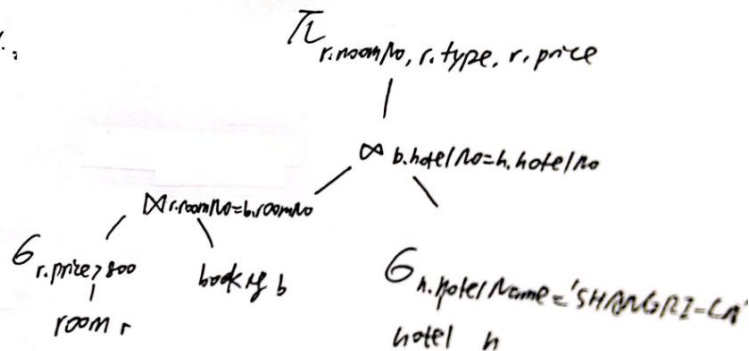 π r.roomNo, r.type, r.price
∞ b.hotelNo=h.hotelNo
⋈ r.roomNo=b.roomNo
σ r.price>800
booking b
σ h.hotelName='SHANGRI-LA'
room r
hotel h